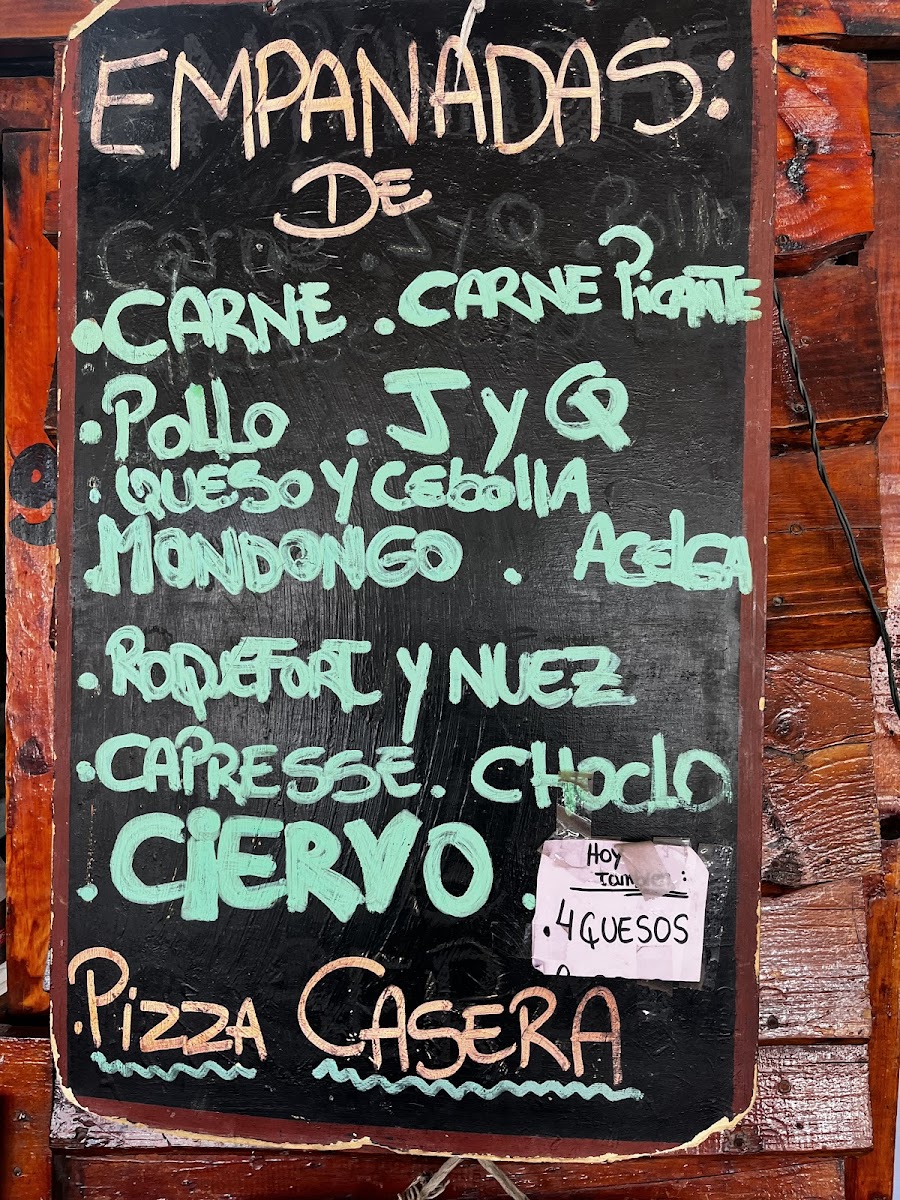 EMPANADAS:
DE
. CARNE . CARNE PICANTE
. POLLO . J y Q
. QUESO Y CEBOLLA
. MONDONGO . ACELGA
. ROQUEFORT Y NUEZ
. CAPRESSE . CHOCLO
. CIERVO .
HOY
también:
. 4 QUESOS
. PIZZA CASERA